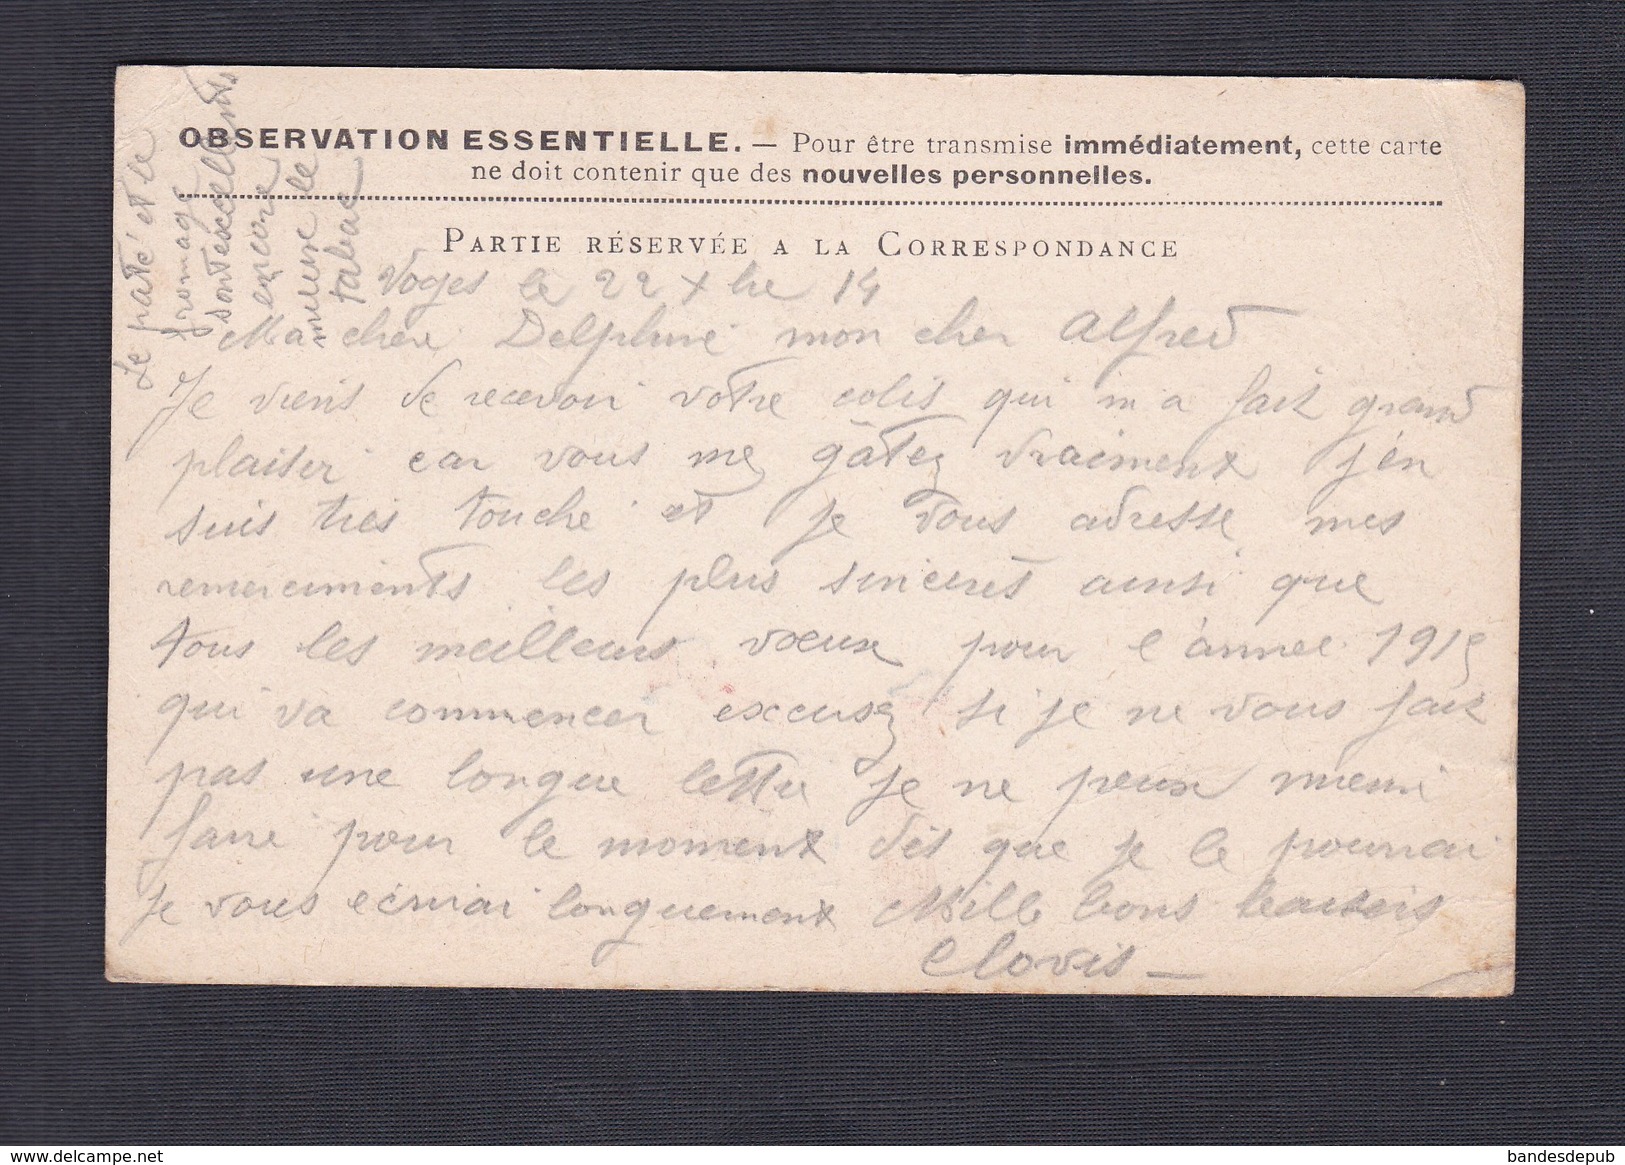 OBSERVATION ESSENTIELLE. — Pour être transmise immédiatement, cette carte
ne doit contenir que des nouvelles personnelles.
PARTIE RÉSERVÉE A LA CORRESPONDANCE
Le paté et le
fromage
sont excellents
encore
le
tabac
Voges le 22 Xbre 14
Ma chère Delphine mon cher Alfred
Je viens de recevoir votre colis qui m'a fait grand
plaisir car vous me gâtez vraiment j'en
suis très touché et je vous adresse mes
remerciments les plus sincères ainsi que
tous les meilleurs voeux pour l'année 1915
qui va commencer excusez si je ne vous fait
pas une longue lettre je ne peux mieux
faire pour le moment dès que je le pourrai
je vous écrirai longuement Mille bons baisers
Clovis —
www.delcampe.net
bandesdepub